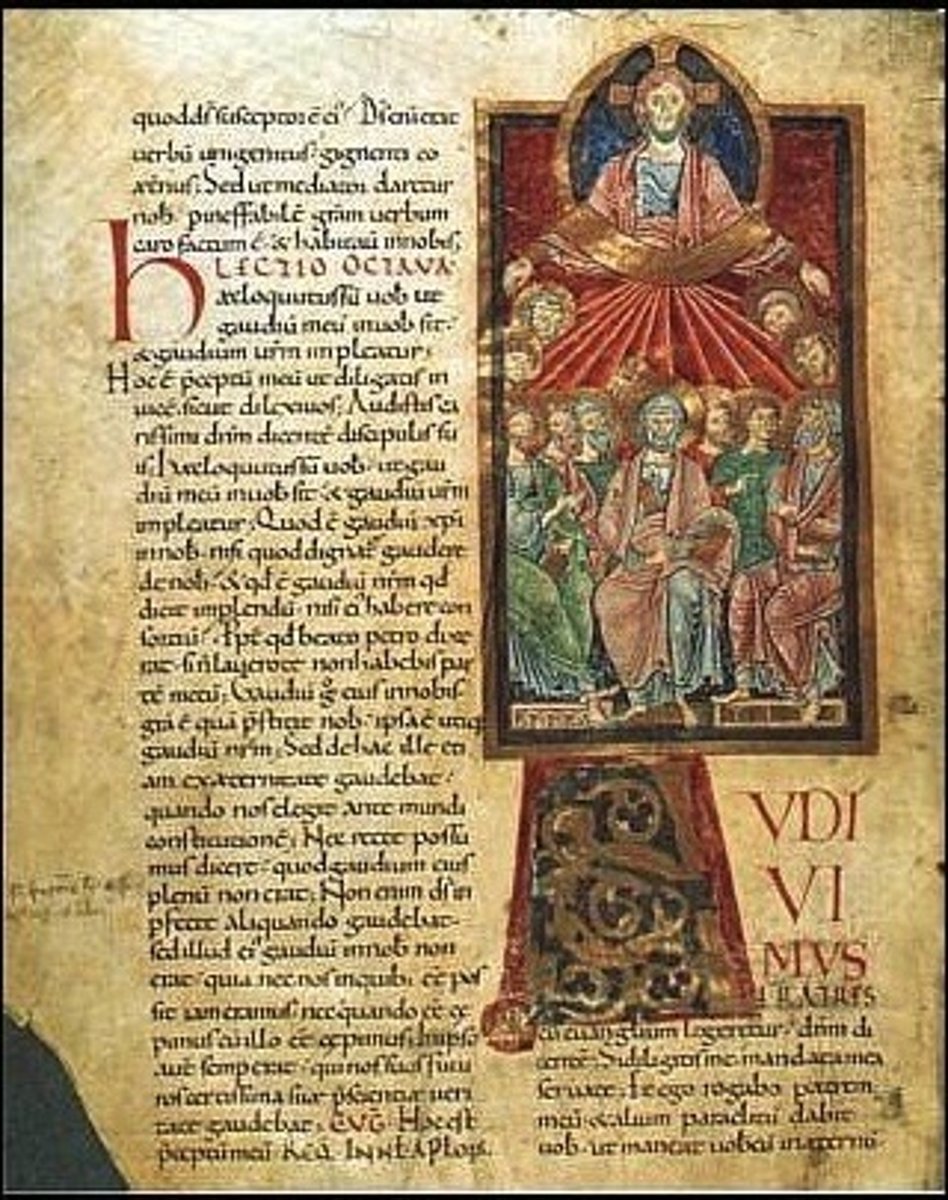 quod dſ ſuſceptor ē ei' Dſ eni erat
uerbū unigenituſ gignenti co
æternuſ; Sed ut mediator daretur
nob p ineffabilē grām uerbum
caro factum ē & habitauit in nobiſ;
LECTIO OCTAVA
hæc loquutuſ ſū uob ut
gaudiū meū in uob ſit
& gaudium ur̄m impleatur;
Hoc ē p̄ceptū meū ut diligatiſ in
uicē ſicut dilexi uoſ; Audiſtiſ ca
riſſimi dn̄m dicentē diſcipuliſ ſu
iſ; hæc loquutuſ ſū uob ut gau
diū meū in uob ſit & gaudiū ur̄m
impleatur; Quod ē gaudiū xp̄i
in nob niſi quod dignat̄ gaudere
de nob & qd ē gaudiū nr̄m qd
dicit implendū niſi ei' habere con
ſortiū; Ppt̄ qd beato petro dixe
rat ſi n̄ lauero te non habebiſ par
tē mecū; Gaudiū g̊ eiuſ in nobiſ
gr̄a ē quā p̄ſtitit nob ipſa ē utiq
gaudiū nr̄m; Sed de hac ille eti
am ex æternitate gaudebat
quando noſ elegit ante mundi
conſtitutionē; Nec recte poſſu
muſ dicere quod gaudium eiuſ
plenū non erat; Non enim dſ in
pfecte aliquando gaudebat
ſed illud ei' gaudiū in nob non
erat quia nec noſ in quib; eē poſ
ſit iam eramuſ nec quando eē ce
pimuſ cū illo eē cepimuſ; In ipſo
autē ſemper erat qui noſ ſuoſ futu
roſ certiſſima ſuæ p̄ſcientiæ ueri
tate gaudebat; EVG Hoc eſt
p̄ceptū meū
A
VDI
VI
MVS
FRATRES
cū euangl̄ium legeretur dn̄m di
centē; Si diligitiſ me mandata mea
ſeruate; Et ego rogabo patrem
meū & alium paraclitū dabit
uob ut maneat uobiſcū in æternū